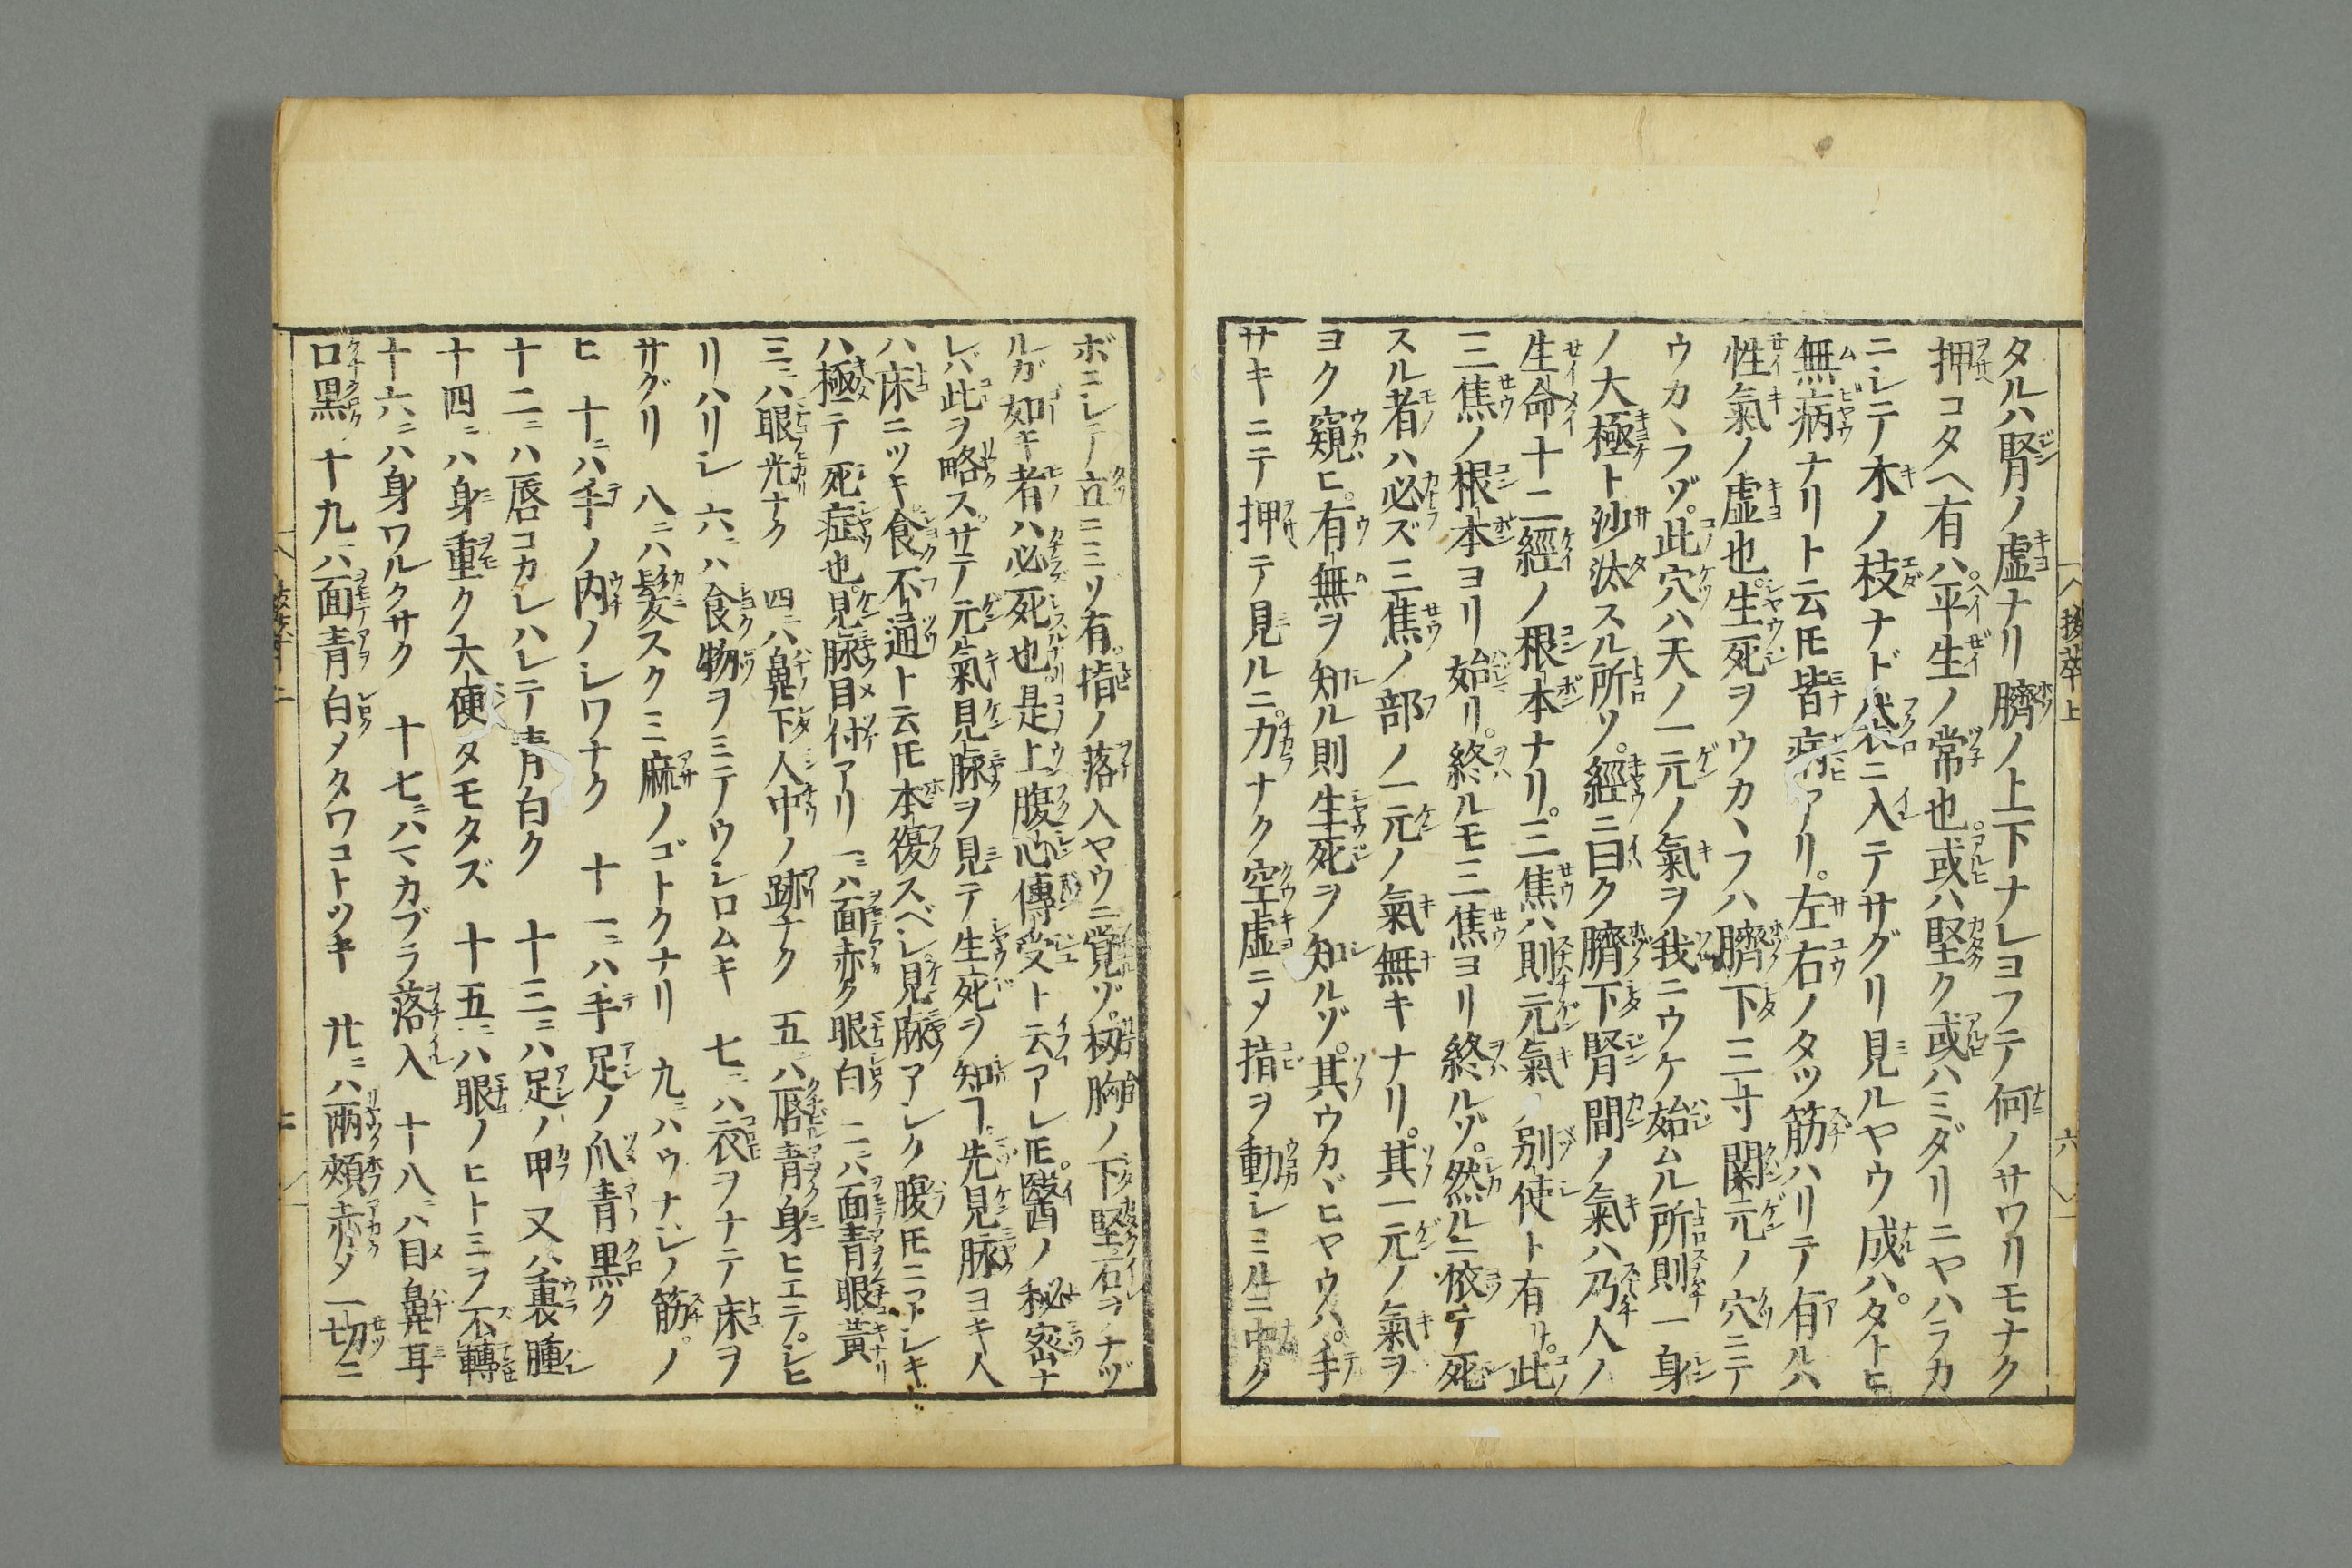 タルハ腎ノ虚ナリ臍ノ上下ナレヨフテ何ノサワリモナク
押コタヘ有ハ平生ノ常也或ハ堅ク或ハミダリニヤハラカ
ニシテ木ノ枝ナドヲ袋ニ入テサグリ見ルヤウ成ハタトヒ
無病ナリト云𪜈皆病アリ。左右ノタツ筋ハリテ有ルハ
性氣ノ虚也生死ヲウカヽフハ臍下三寸関元ノ穴ニテ
ウカヽフゾ。此穴ハ天ノ一元ノ氣ヲ我ニウケ始ムル所則一身
ノ大極ト沙汰スル所ソ。經ニ曰ク臍下腎間ノ氣ハ乃人ノ
生命十二經ノ根本ナリ。三焦ハ則元氣ノ別使ト有リ。此
三焦ノ根本ヨリ始リ。終ルモ三焦ヨリ終ルゾ。然ルニ依テ死
スル者ハ必ズ三焦ノ部ノ一元ノ氣無キナリ。其一元ノ氣ヲ
ヨク窺ヒ。有無ヲ知ル則生死ヲ知ルゾ。其ウカヾヒヤウハ。手
サキニテ押テ見ルニ。力ナク空虚ニメ指ヲ動シミルニ中ク
ボニシテ立ニミゾ有。指ノ落入ヤウニ覚ゾ。扨胸ノ下堅石ヲナヅ
ルガ如キ者ハ必死也是上腹心傳受ト云アレ𪜈。醫ノ秘密ナ
レバ此ヲ略スサテ元氣見脉ヲ見テ生死ヲ知ヿ。先見脉ヨキ人
ハ床ニツキ食不通ト云𪜈本復スベシ。見脉アシク腹𪜈ニアシキ
ハ極テ死症也。見脉目付アリ 一ニハ面赤ク眼白 二ニハ面青眼黄
三ニハ眼光ナク 四ニハ鼻下人中ノ跡ナク 五ニハ唇青身ヒエテ。シヒ
リハリシ 六ニハ食物ヲミテウシロムキ 七ニハ衣ヲナテ床ヲ
サグリ 八ニハ髪スクミ麻ノゴトクナリ 九ニハウナシノ筋。ノ
ヒ 十ニハ手ノ内ノシワナク 十一ニハ手足ノ爪青黒ク
十二ニハ唇コカレハレテ青白ク 十三ニハ足ノ甲又ハ裏腫
十四ニハ身重ク大便タモタズ 十五ニハ眼ノヒトミヲ不轉
十六ニハ身ワルクサク 十七ニハマカブラ落入 十八ニハ目鼻耳
口黒 十九ニハ面青白メタワコトツキ 廿ニハ兩頰赤メ一切ニ
六